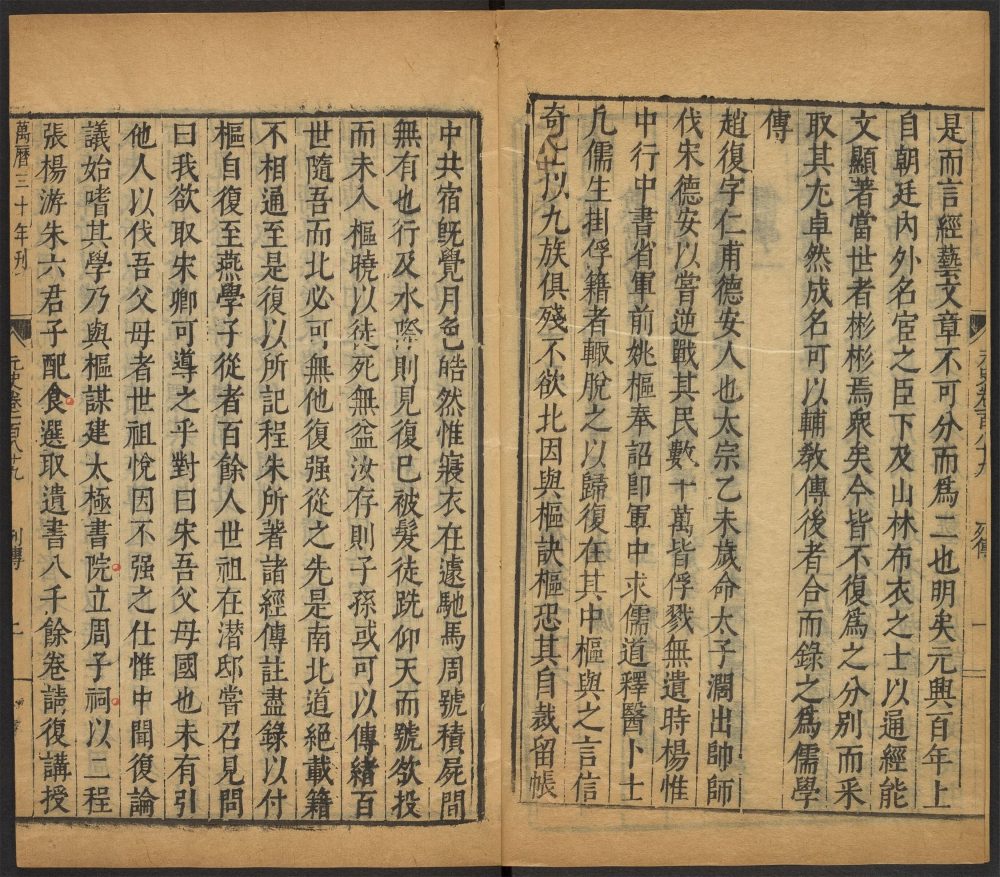 是而言經藝文章不可分而爲二也明矣元興百年上
自朝廷內外名宦之臣下及山林布衣之士以通經能
文顯著當世者彬彬焉衆矣今皆不復爲之分別而采
取其尤卓然成名可以輔敎傳後者合而錄之爲儒學
傳
趙復字仁甫德安人也太宗乙未歲命太子濶出帥師
伐宋德安以嘗逆戰其民數十萬皆俘戮無遺時楊惟
中行中書省軍前姚樞奉詔卽軍中求儒道釋醫卜士
凡儒生掛俘籍者輒脫之以歸復在其中樞與之言信
奇士以九族俱殘不欲北因與樞訣樞恐其自裁留帳
中共宿旣覺月色皓然惟寢衣在遽馳馬周號積屍間
無有也行及水際則見復已被髮徒跣仰天而號欲投
而未入樞曉以徒死無益汝存則子孫或可以傳緒百
世隨吾而北必可無他復强從之先是南北道絕載籍
不相通至是復以所記程朱所著諸經傳註盡錄以付
樞自復至燕學子從者百餘人世祖在潛邸嘗召見問
曰我欲取宋卿可導之乎對曰宋吾父母國也未有引
他人以伐吾父母者世祖悅因不强之仕惟中聞復論
議始嗜其學乃與樞謀建太極書院立周子祠以二程
張楊游朱六君子配食選取遺書八千餘卷請復講授
萬曆三十年刊
元史卷一百八十九
列傳